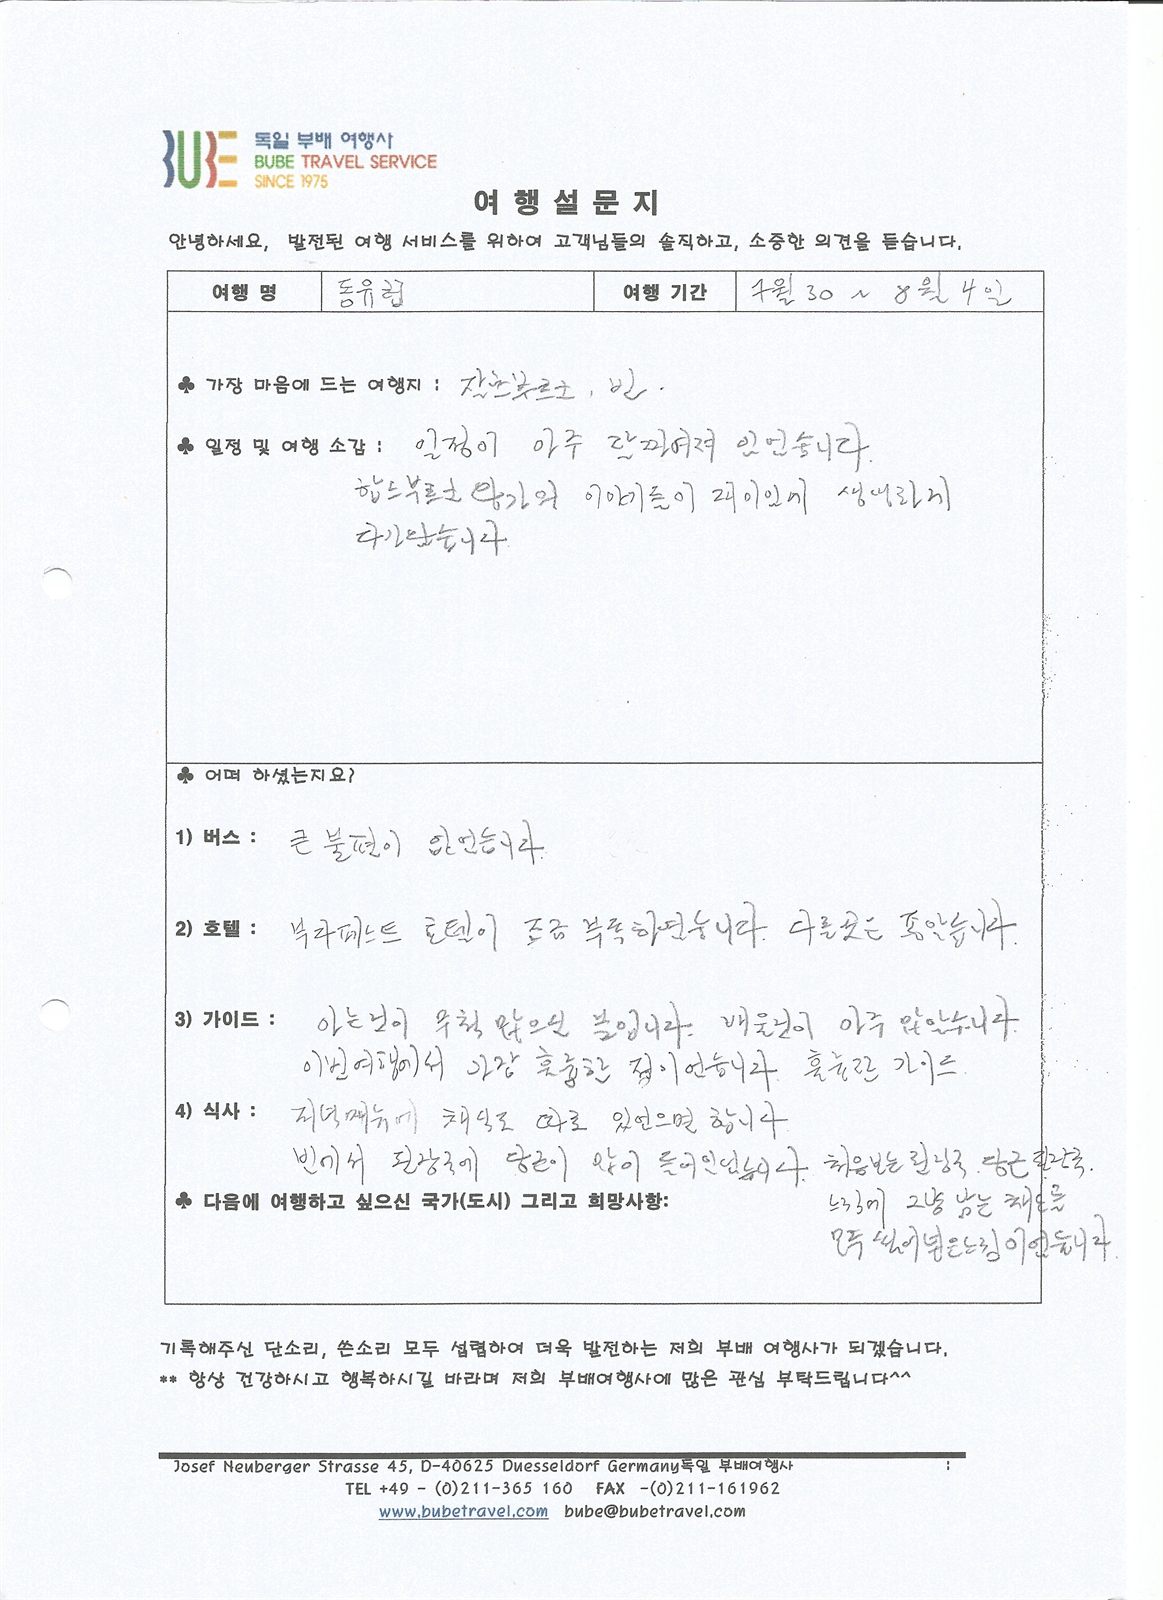 BUBE 독일 부배 여행사
BUBE TRAVEL SERVICE
SINCE 1975
여 행 설 문 지
안녕하세요, 발전된 여행 서비스를 위하여 고객님들의 솔직하고, 소중한 의견을 듣습니다.
여행 명 동유럽 여행 기간 7월 30 ~ 8월 4일
♣ 가장 마음에 드는 여행지 : 잘츠부르크, 빈.
♣ 일정 및 여행 소감 : 일정이 아주 잘 짜여져 있었습니다.
합스부르크 왕가의 이야기들이 생생하게
다가왔습니다.
♣ 어떠 하셨는지요?
1) 버스 : 큰 불편이 없었습니다.
2) 호텔 : 부다페스트 호텔이 조금 부족하였습니다. 다른곳은 좋았습니다.
3) 가이드 : 아는것이 무척 많으신 분입니다. 배울것이 아주 많았습니다.
이번여행에서 가장 훌륭한 점이었습니다. 훌륭한 가이드
4) 식사 : 저녁메뉴에 채식도 따로 있었으면 합니다.
빈에서 된장국에 당근이 많이 들어있었습니다. 처음보는 된장국. 당근된장국.
♣ 다음에 여행하고 싶으신 국가(도시) 그리고 희망사항:
느낌에 그냥 남는 채소를
모두 썰어넣은느낌이었습니다.
기록해주신 단소리, 쓴소리 모두 섭렵하여 더욱 발전하는 저희 부배 여행사가 되겠습니다.
** 항상 건강하시고 행복하시길 바라며 저희 부배여행사에 많은 관심 부탁드립니다^^
Josef Neuberger Strasse 45, D-40625 Duesseldorf Germany독일 부배여행사 :
TEL +49 - (0)211-365 160 FAX -(0)211-161962
www.bubetravel.com bube@bubetravel.com